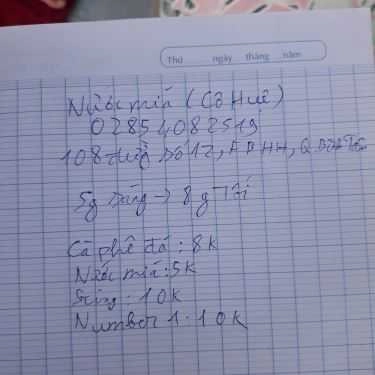 Thứ ngày tháng năm
Nước mía (Cô Huệ)
02854082519
108 đường số 12, F BHH, Q. Bình Tân
5g sáng → 8g Tối
Cà phê đá : 8k
Nước mía : 5k
Sting : 10k
Number 1 : 10k